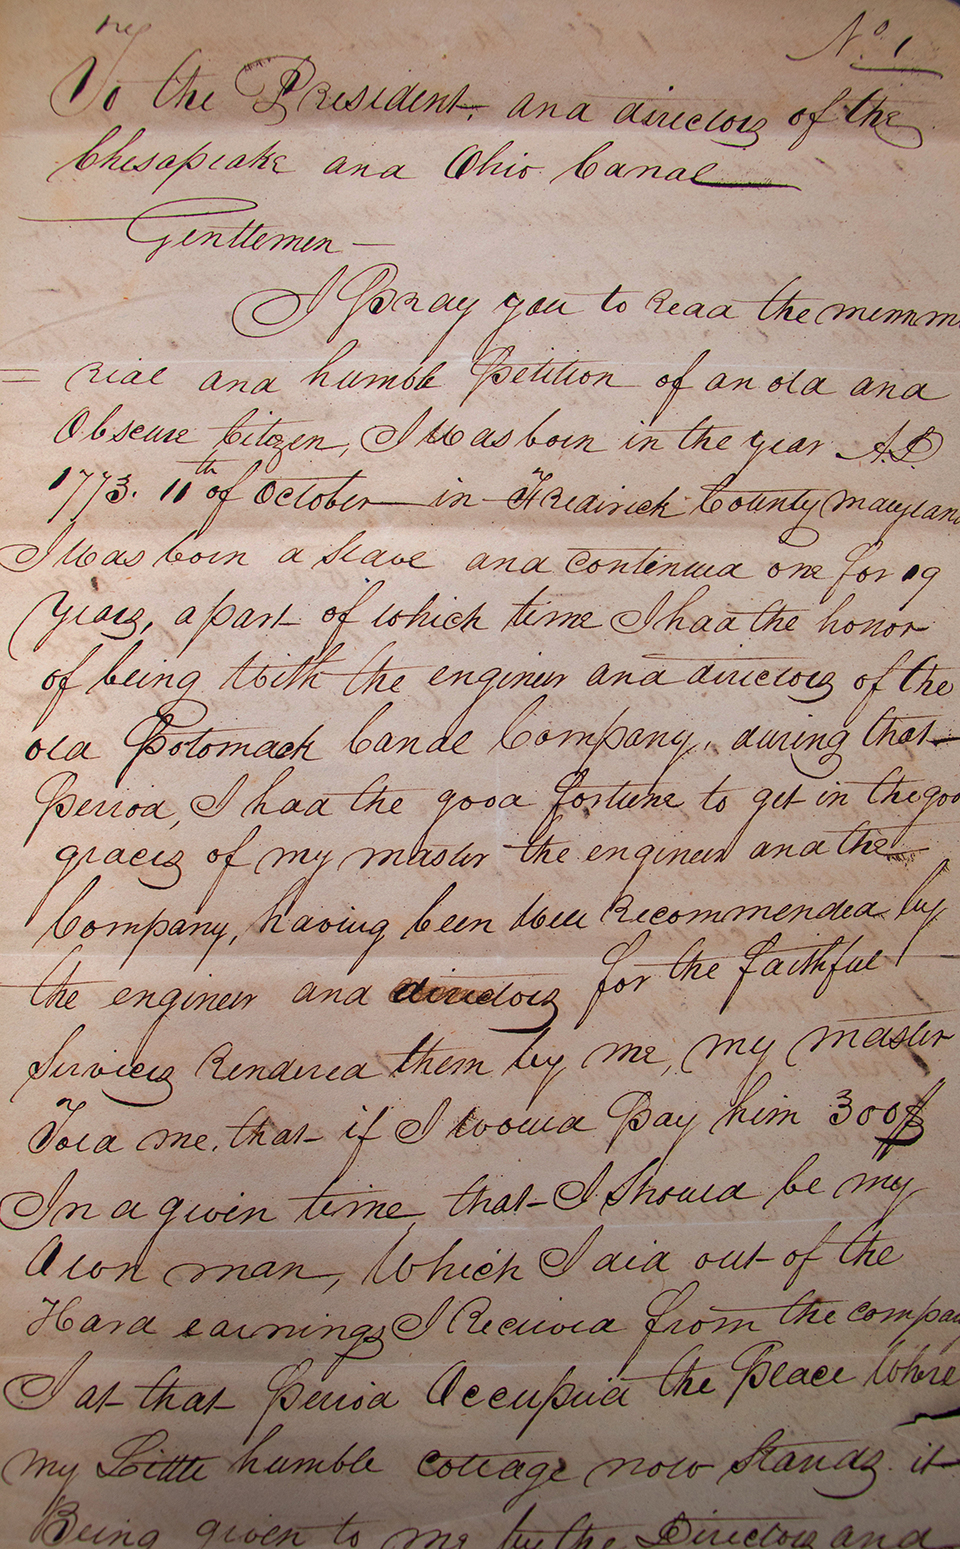 No 1
To the President, and directors of the
Chesapeake and Ohio Canal
Gentlemen —
I Pray you to read the memm
= rial and humble Petition of an old and
Obscure Citizen, I Was born in the year A.D
1773. 11th of October in Fredirick County Maryland
I Was born a slave and continued one for 19
Years, a part of which time I had the honor
of being With the engineer and directors of the
old Potomack Canal Company, during that
Period, I had the good fortune to get in the good
graces of my master the engineer and the
Company, having been Well Recommended by
the engineer and directors for the faithful
Services Rendered them by me, my master
Told me, that if I would Pay him 300$
In a given time, that I Should be my
Own man, Which I did out of the
Hard earnings I Received from the company
I at that Period Occupied the Place Where
my Little humble cottage now Stands. it
Being given to me by the Directors and